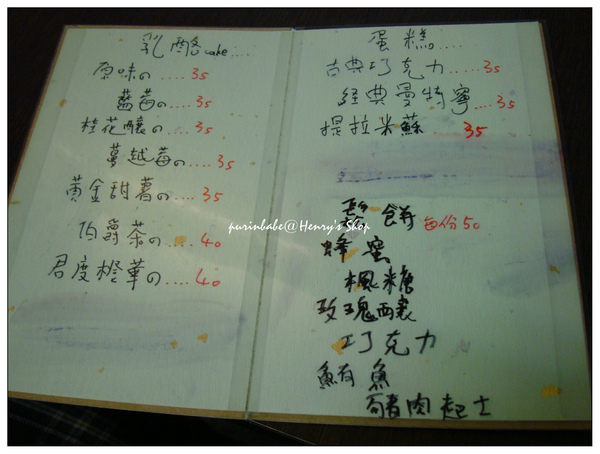 乳酪cake....
原味の....35
藍莓の...35
桂花釀の...35
蔓越莓の....35
黃金甜薯の....35
伯爵茶の....40
君度橙華の....40
蛋糕....
古典巧克力.....35
經典曼特寧....35
提拉米蘇.....35
鬆餅 每份50
蜂蜜
楓糖
玫瑰釀
巧克力
鮪魚
豬肉起士
purinbabe@Henry's Shop